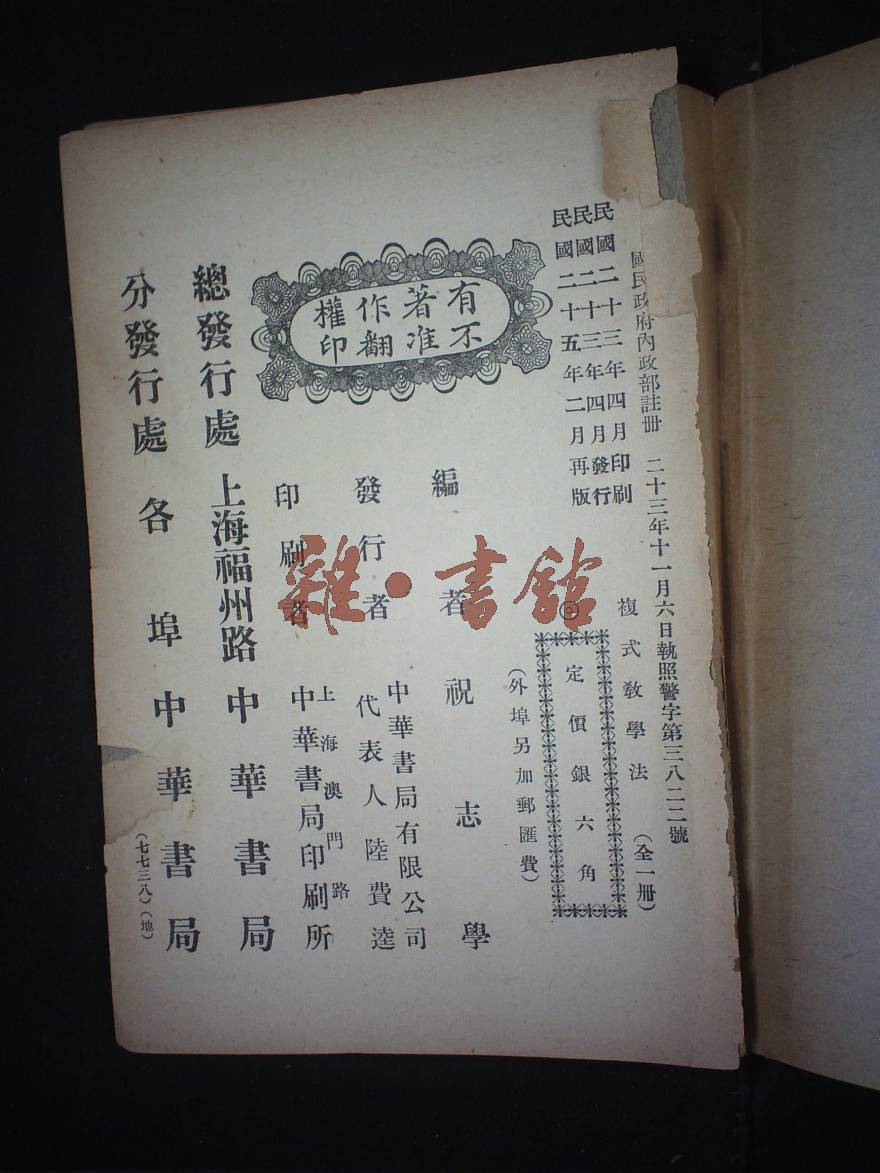 國民政府內政部註冊 二十三年十一月六日執照警字第三八二二號
民國二十三年四月印刷
民國二十三年四月發行
民國二十五年二月再版
複式教學法(全一冊)
定價銀六角
(外埠另加郵匯費)
有著作權
不准翻印
編者 祝志學
發行者 中華書局有限公司
代表人 陸費逵
印刷者 上海澳門路
中華書局印刷所
總發行處 上海福州路 中華書局
分發行處 各埠 中華書局
(七七三八)(地)
雜·書館